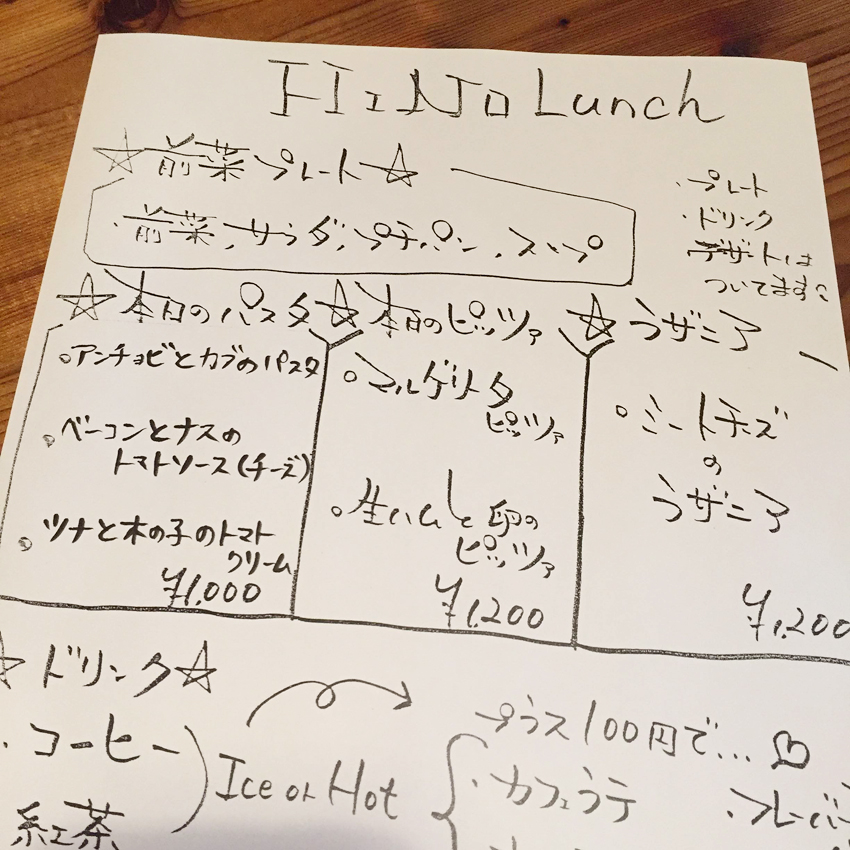 HiNo Lunch
☆前菜プレート☆
・前菜、サラダ、プチパン、スープ
・プレート
・ドリンク
デザートは
ついてます。
☆本日のパスタ
・アンチョビとカブのパスタ
・ベーコンとナスの
トマトソース(チーズ)
・ツナと木の子のトマト
クリーム
¥1,000
☆本日のピッツァ
・マルゲリータ
ピッツァ
・生ハムと卵の
ピッツァ
¥1,200
☆ラザニア
・ミートチーズ
の
ラザニア
¥1,200
☆ドリンク☆
・コーヒー
紅茶
Ice or Hot
プラス100円で…♡
・カフェラテ
・フレーバー